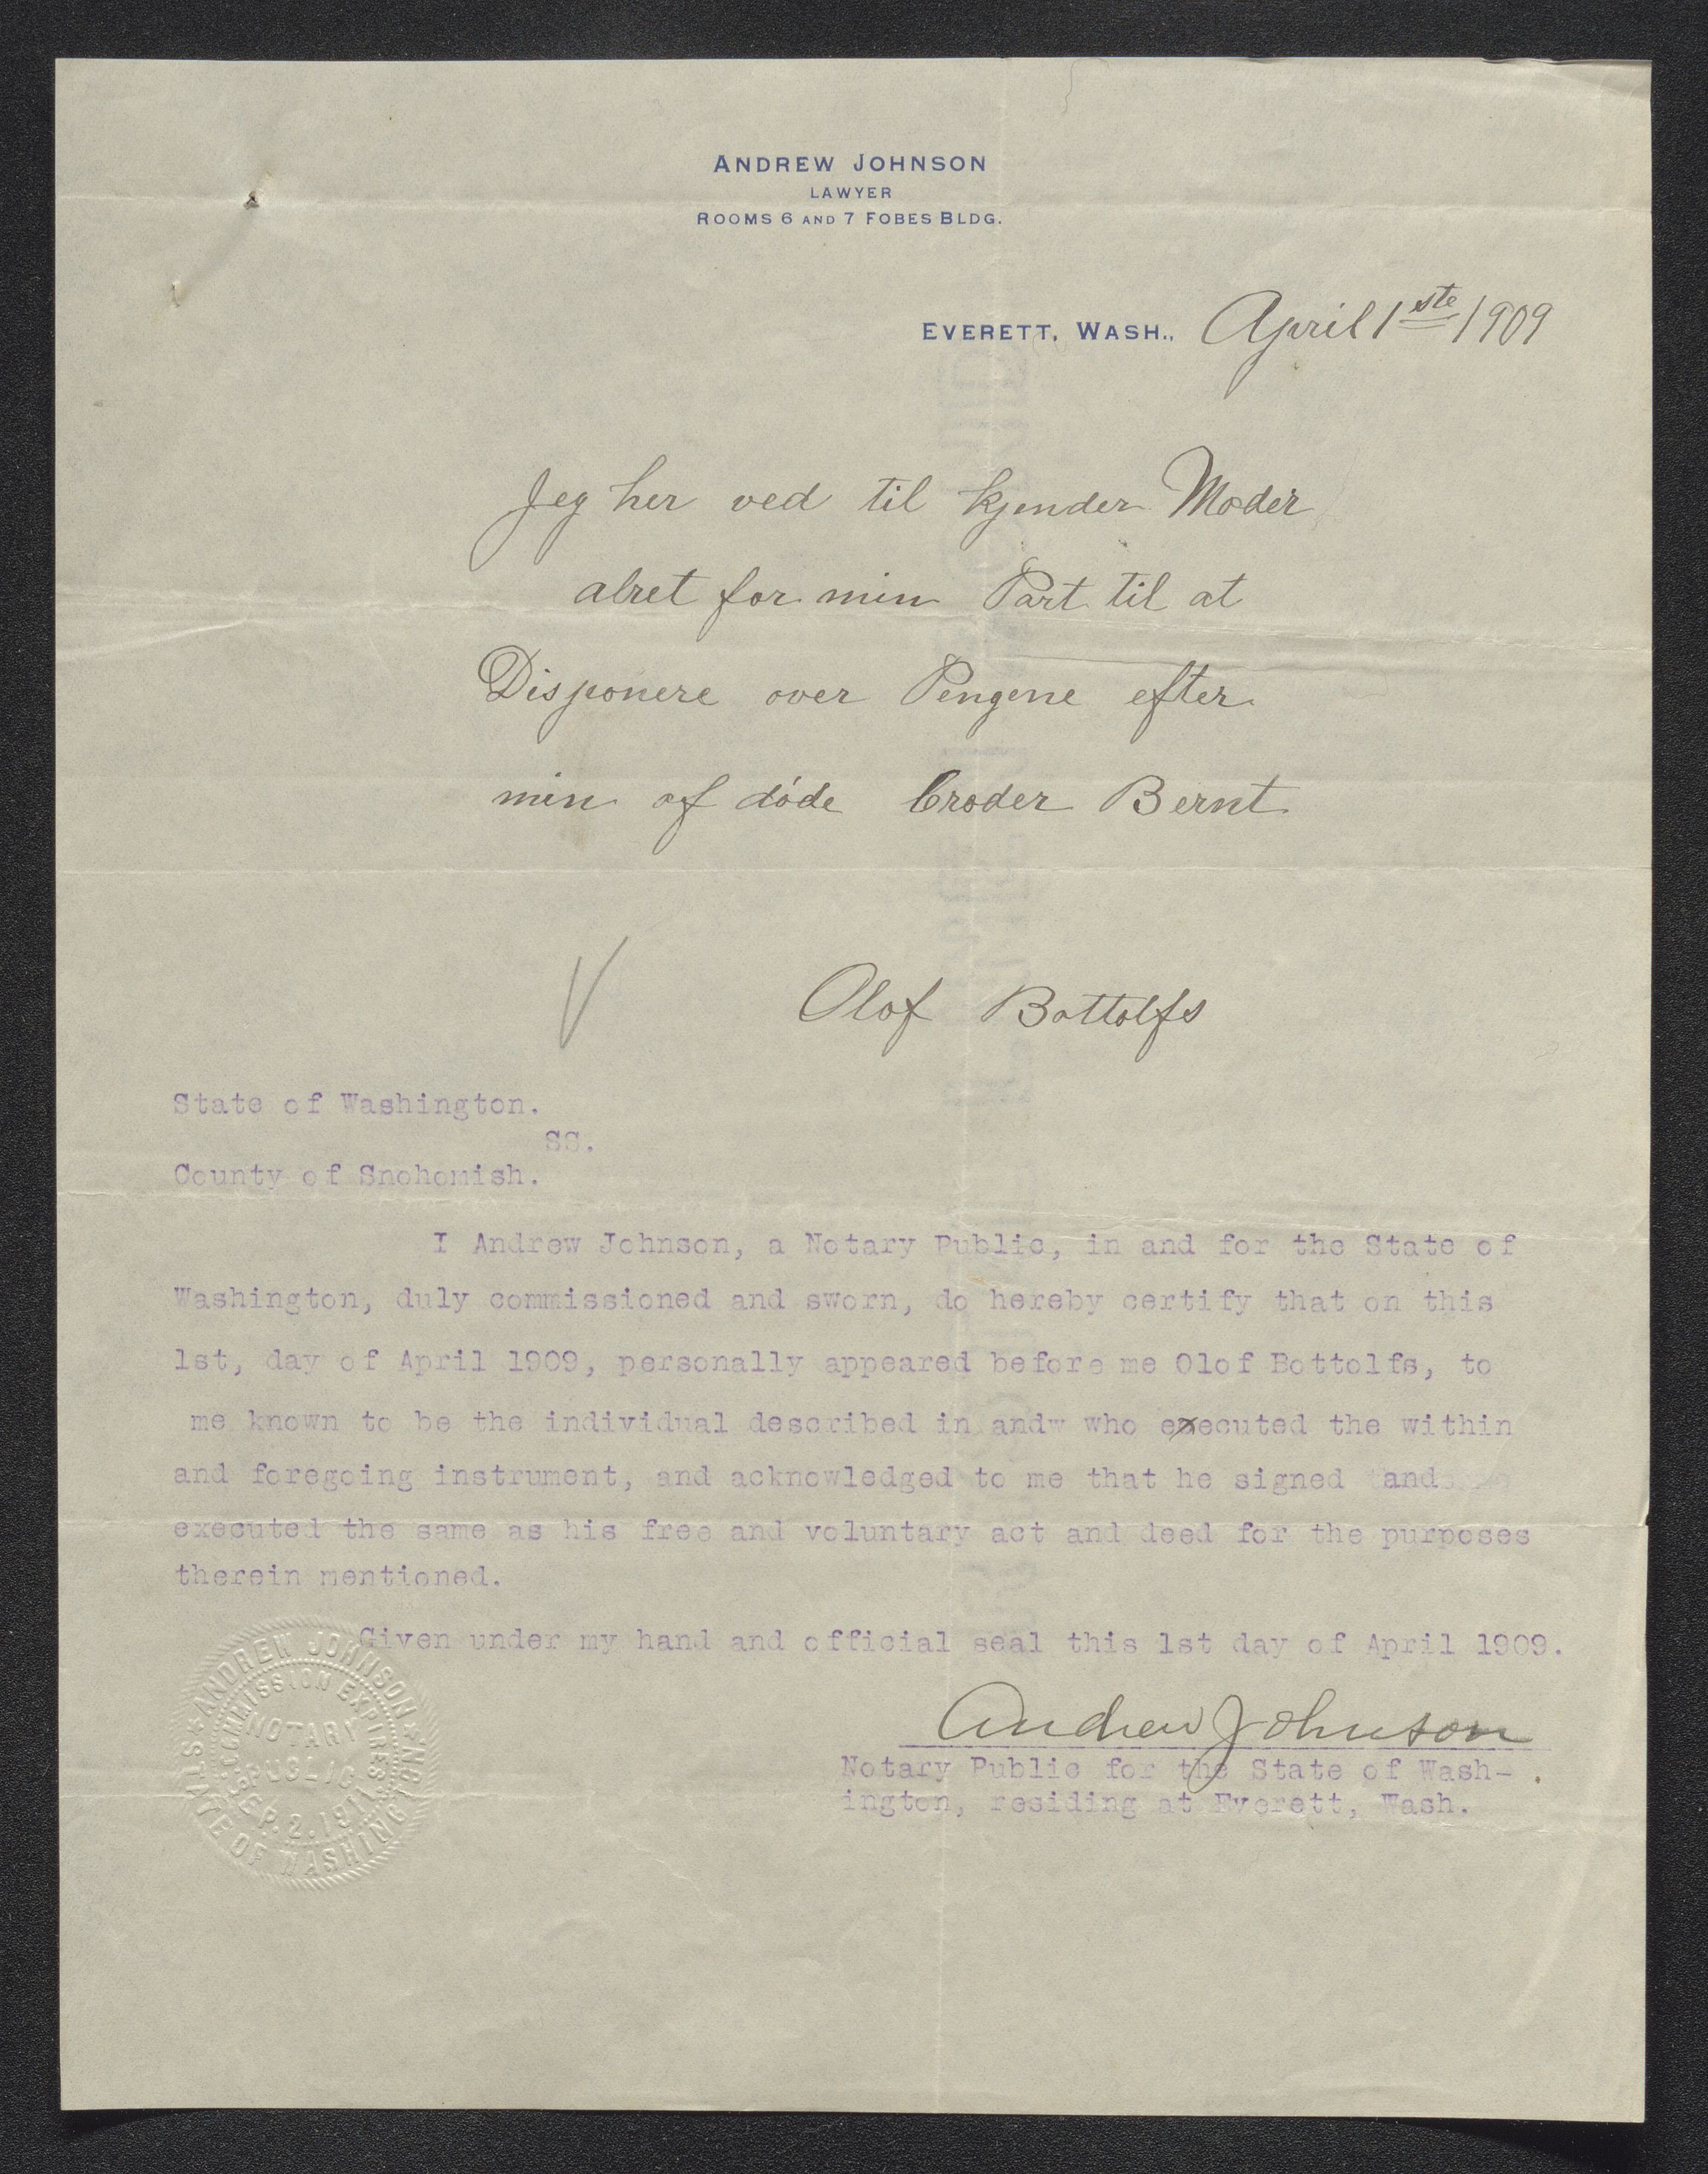 ANDREW JOHNSON
LAWYER
ROOMS 6 AND 7 FOBES BLDG.
EVERETT, WASH., April 1ste 1909
Jeg her ved til kjender Moder
alret for min Part til at
Disponere over Pengene efter
min af døde broder Bernt
Olof Bottolfs
State of Washington.
SS.
County of Snohomish.
I Andrew Johnson, a Notary Public, in and for the State of
Washington, duly commissioned and sworn, do hereby certify that on this
1st, day of April 1909, personally appeared before me Olof Bottolfs, to
me known to be the individual described in andw who executed the within
and foregoing instrument, and acknowledged to me that he signed and
executed the same as his free and voluntary act and deed for the purposes
therein mentioned.
Given under my hand and official seal this 1st day of April 1909.
Andrew Johnson
Notary Public for the State of Wash-
ington, residing at Everett, Wash.
ANDREW JOHNSON
COMMISSION EXPIRES
NOTARY
PUBLIC
SEP. 2. 191
STATE OF WASHINGTON